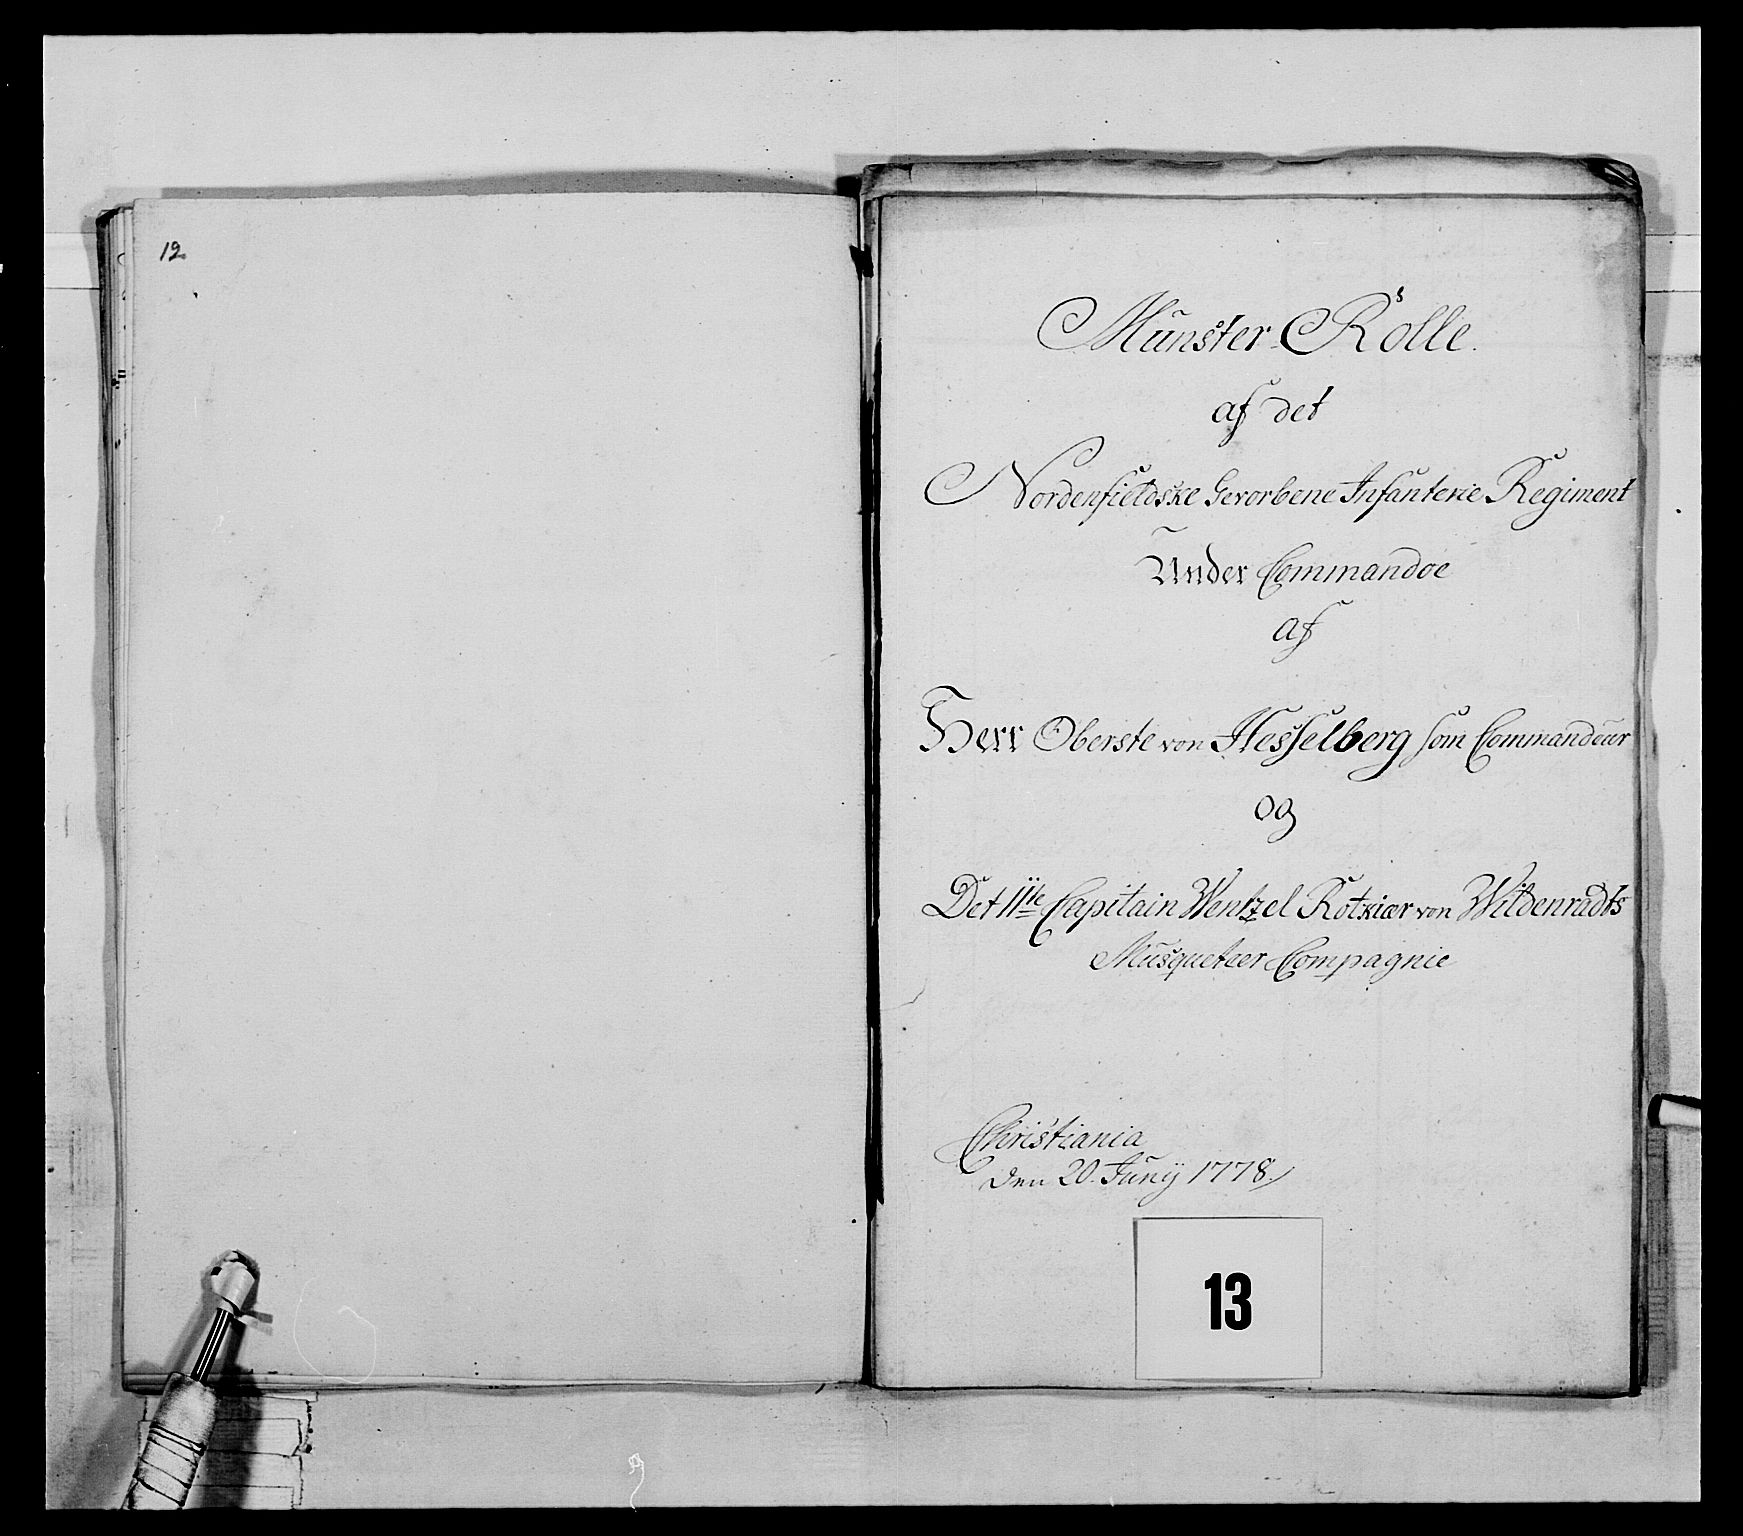 12
Munster-Rolle.
af det
Nordenfieldske Gevorbene Infanterie Regiment
Under Commandoe
af
Herr Oberste von Hesselberg som Commandeur
og
Det 11te Capitain Wentzel Rotkiær von Wildenradts
Musqueteer Compagnie
Christiania
den 20. Juny 1778.
13